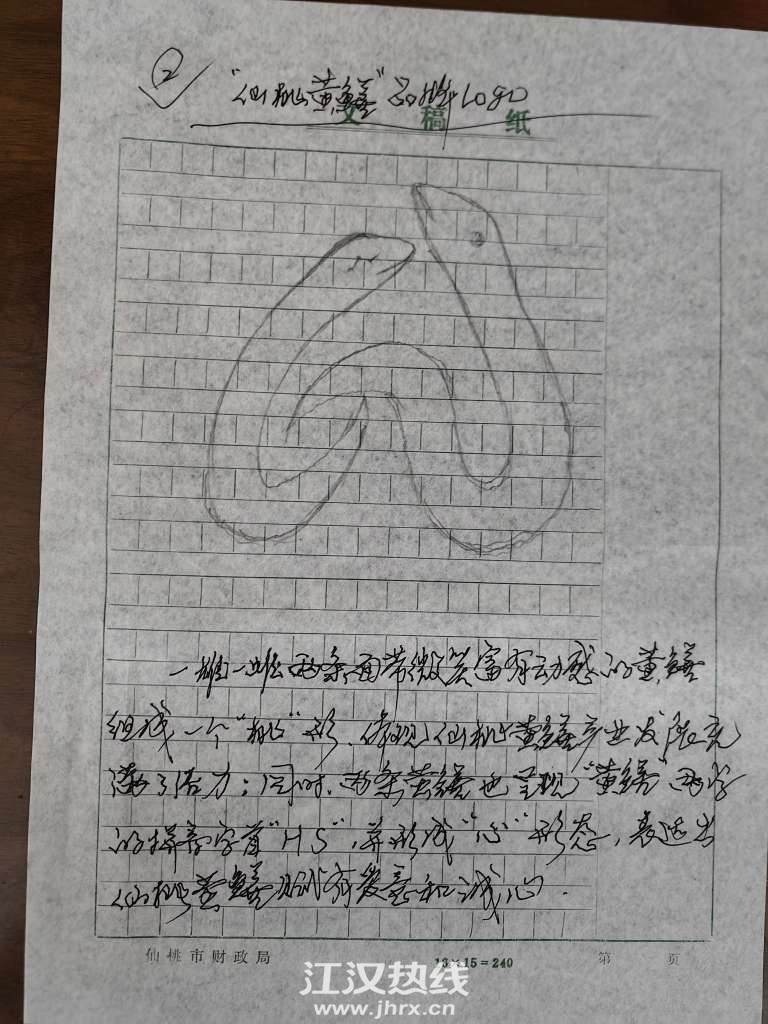 2
“仙桃黄鳝”品牌Logo
文稿纸
一雄一雌两条面带微笑富有动感的黄鳝
组成一个“桃”形，体现仙桃黄鳝产业发展充
满了活力；同时，两条黄鳝也呈现“黄鳝”两字
的拼音字首“HS”，并形成“心”形态，表达出
仙桃黄鳝人有爱意和诚心．
仙桃市财政局 13×15=240 第 页
江汉热线
www.jhrx.cn